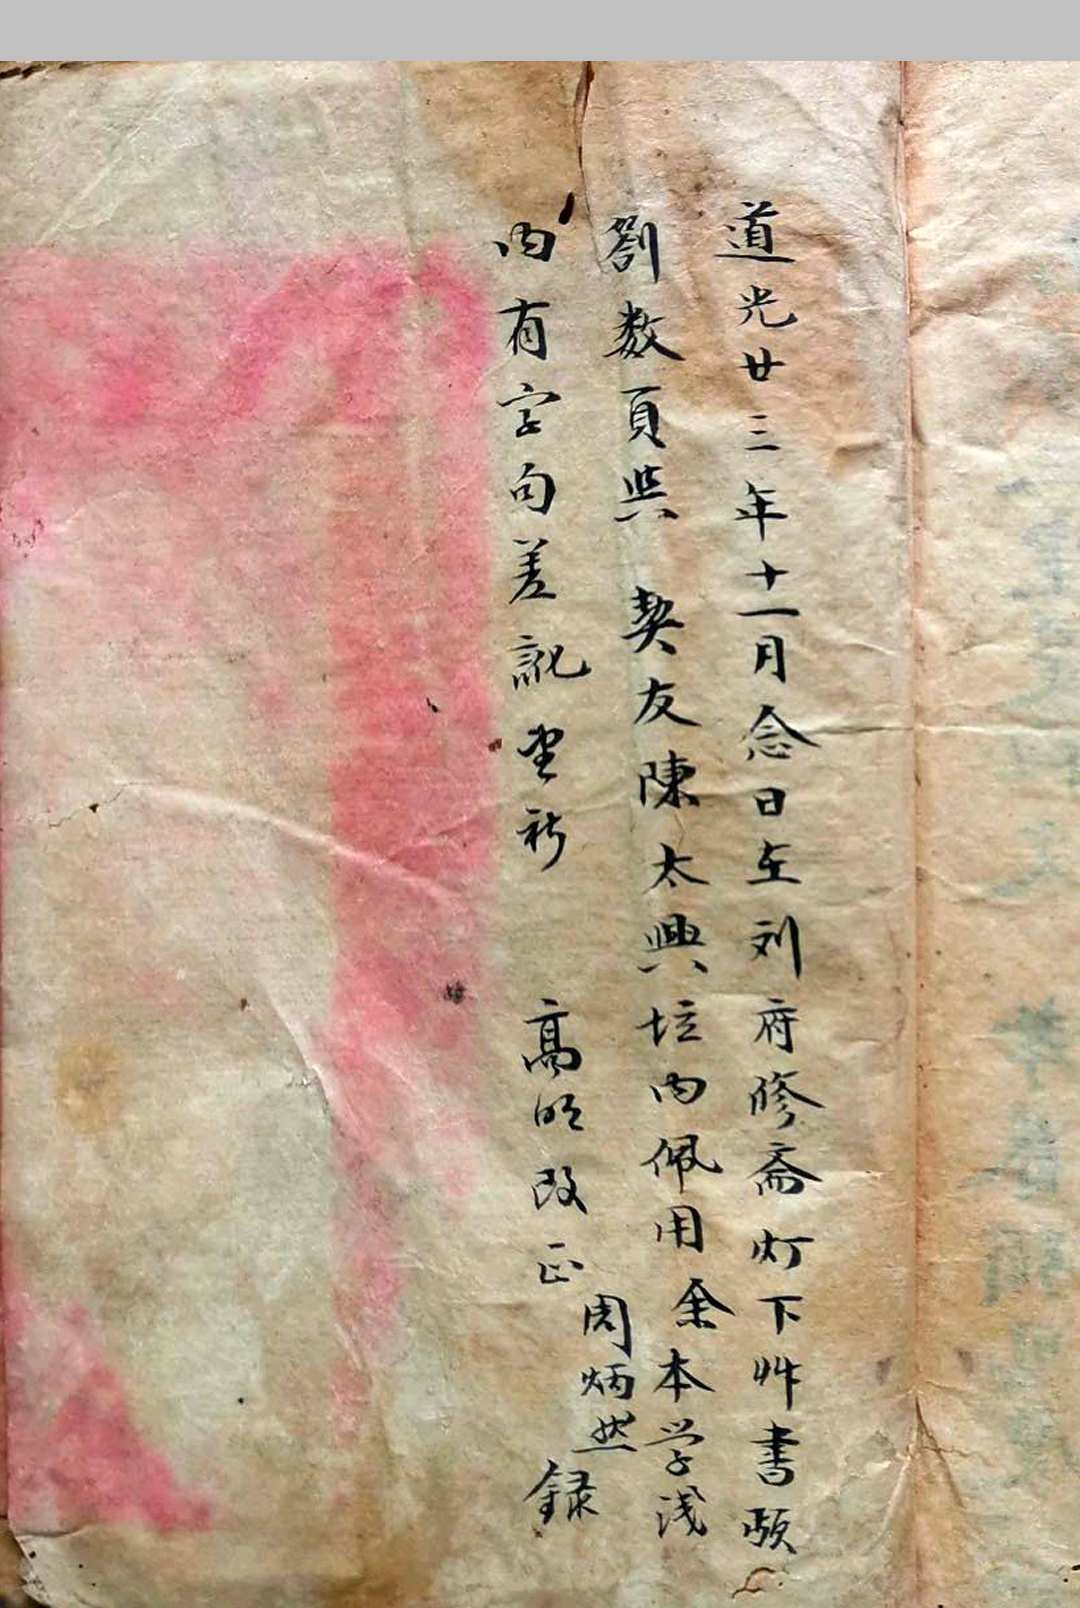 道光廿三年十一月念日在刘府修斋灯下艸書願
劄数頁與 契友陳太興坛内佩用余本学浅
内有字句差訛望祈 高明改正
周炳然
録